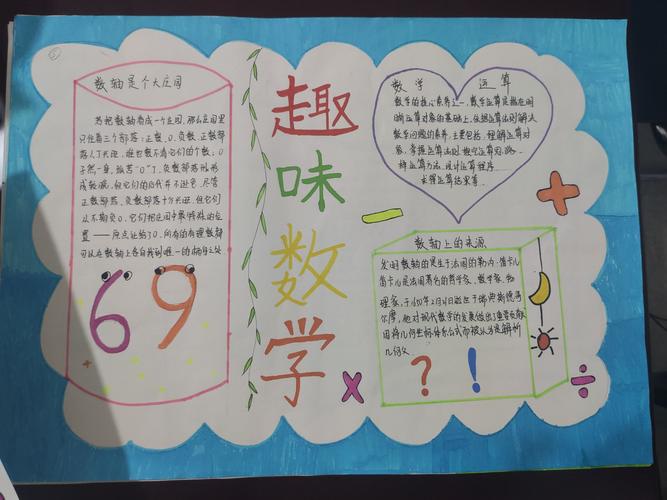 数轴是个大庄园
若把数轴看成一个庄园，那么庄园里
只住着三个部落：正数、0、负数，正数部
落人丁兴旺，谁也数不清它们的个数；0
孑然一身，孤苦"0"丁，负数部落形形
成较减，但它们的后代并不逊色，尽管
正数部落、负数部落十分兴旺，但它们
从不欺负0，它们把庄园中最特殊的位
置——原点让给了0，所有的有理数都
可以在数轴上各自找到唯一的栖身之处
69
趣
味
数
学
数学 运算
数学的核心素养之一，数学运算是指在明
晰运算对象的基础上，依据运算法则解决
数学问题的素养。主要包括：理解运算对
象，掌握运算法则，探究运算思路，
择运算方法，设计运算程序
求得运算结果等．
数轴上的来源
发明数轴的是生于法国的勒内·笛卡儿
笛卡儿是法国著名的哲学家、数学家、物
理家，于1650年2月11日逝世于瑞典斯德哥
尔摩，他对现代数学的发展做出了重要贡献
因将几何坐标体系公式而被认为是解析
几何父．
? !
− +
× ÷